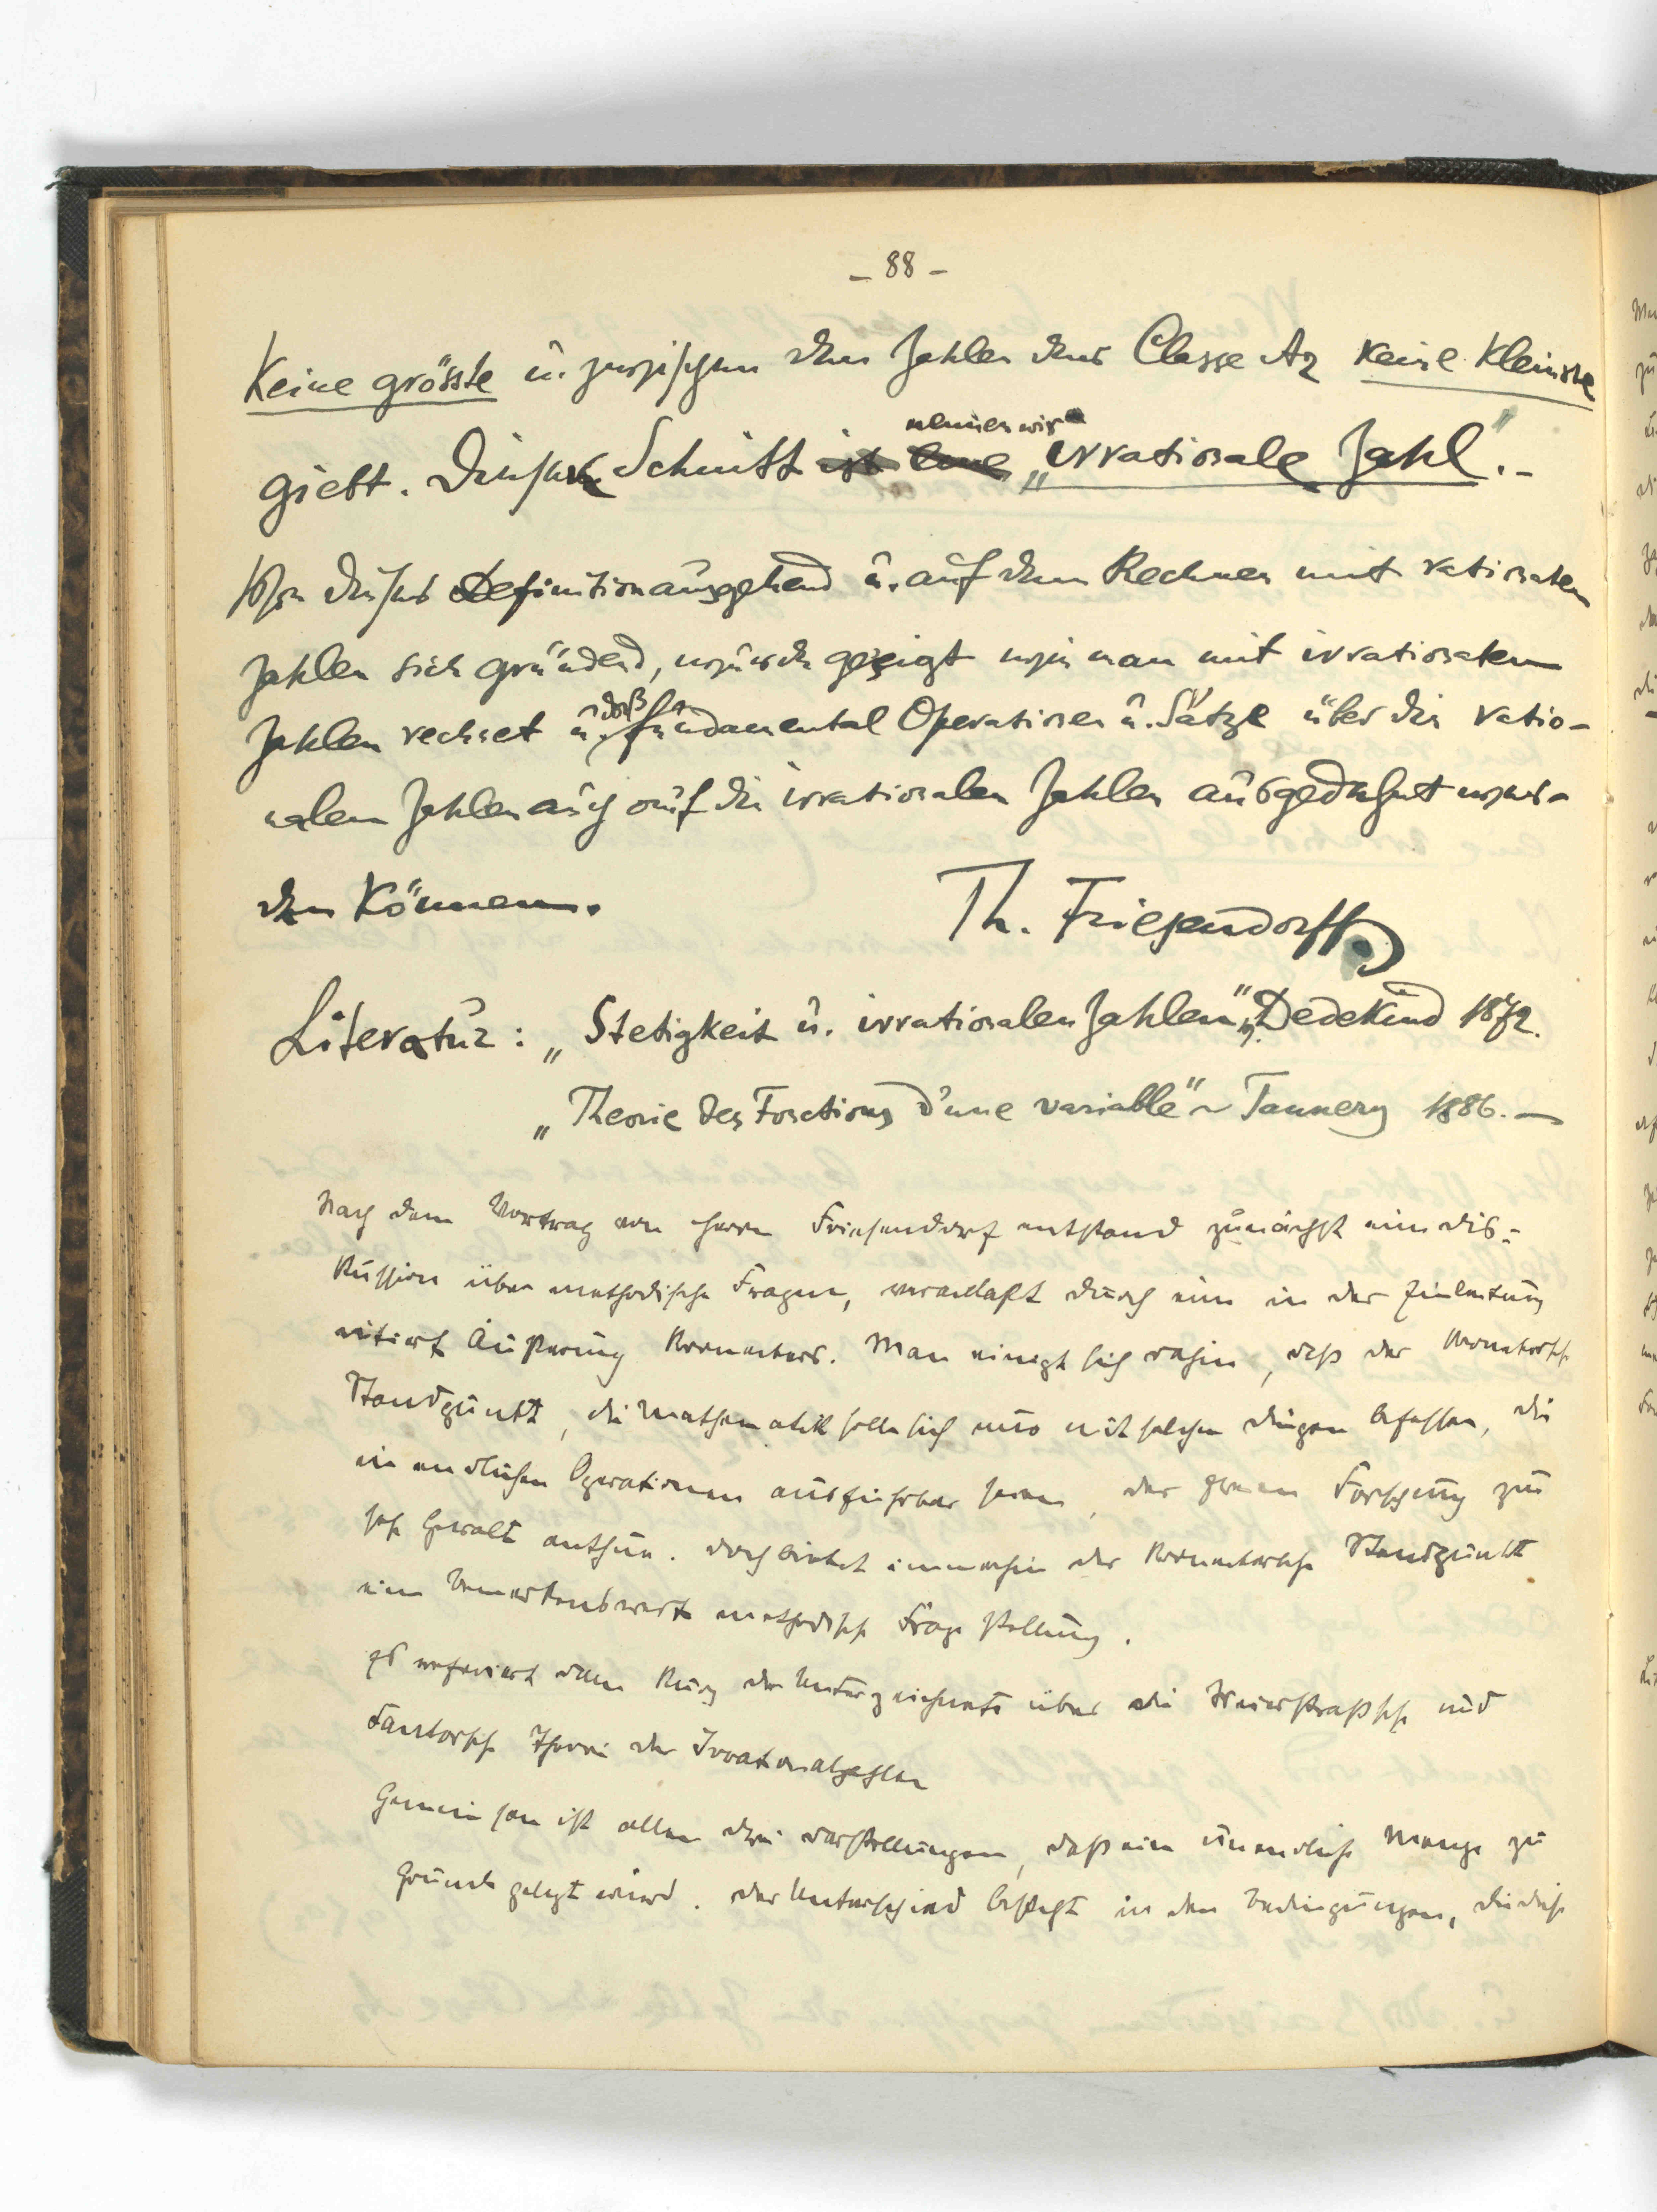 – 88 –
Keine grösste u. zwischen den Zahlen der Classe A2 keine kleinste
giebt. Diesen Schnitt ist eine nennen wir „irrationale Zahl".–
Von dieser Definition ausgehend u. auf dem Rechnen mit rationalen
Zahlen sich gründend, wurde gezeigt wie man mit irrationalen
Zahlen rechnet u. daß fundamental Operationen u. Sätze über die ratio-
nalen Zahlen auch auf die irrationalen Zahlen ausgedehnt wer-
den können.
Th. Friesendorff
Literatur: „Stetigkeit u. irrationalen Zahlen", Dedekind 1872.
„Theorie des Fonctions d'une variable" ~ Tannery 1886.—
Nach dem Vortrag von Herrn Friesendorf entstand zunächst eine Dis-
kussion über methodische Fragen, veranlaßt durch eine in der Einleitung
citierte Äußerung Kroneckers. Man einigt sich dahin, daß der Kroneckersche
Standpunkt, die Mathematik solle sich nur mit solchen Dingen befassen, die
in endlichen Operationen ausführbar seien, der freien Forschung zu
sehr Gewalt anthue. Doch bietet immerhin der Kroneckersche Standpunkt
eine bemerkenswerte methodische Fragestellung.
Es referiert dann kurz der Unterzeichnete über die Weierstraßsche und
Cantorsche Theorie der Irrationalzahlen
Gemeinsam ist allen drei Darstellungen, daß eine unendliche Menge zu
Grunde gelegt wird. Der Unterschied besteht in den Bedingungen, die diese